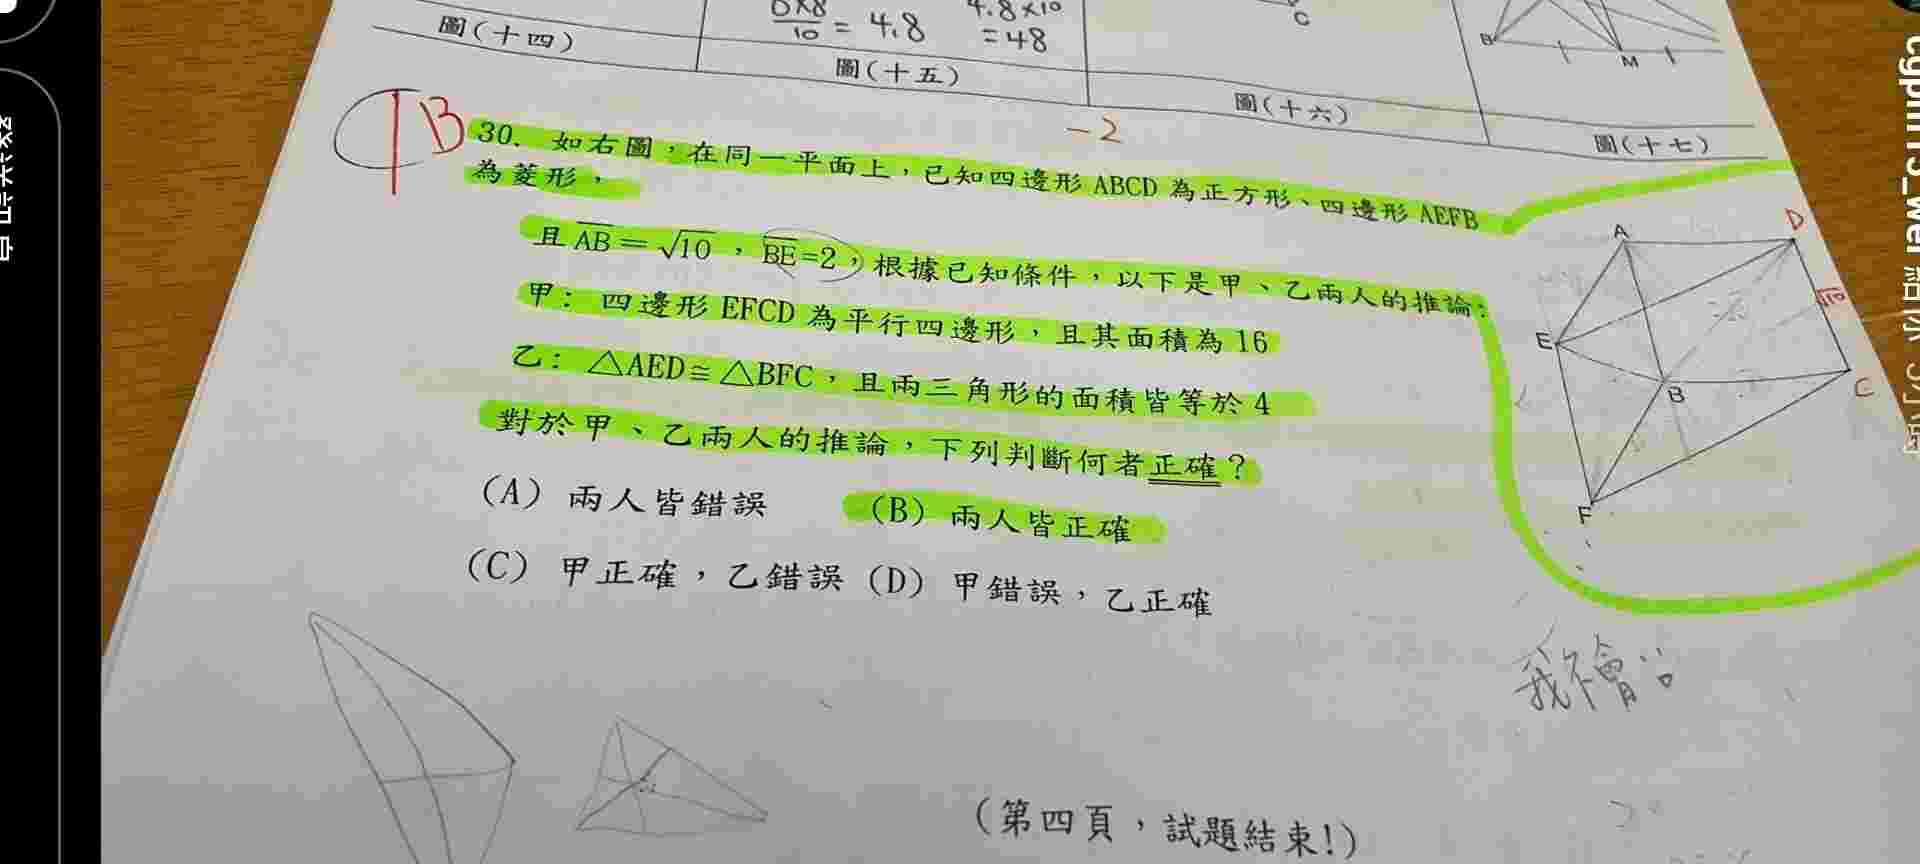 6×8/10 = 4.8
4.8×10
=48
C
B
M
圖(十四)
圖(十五)
圖(十六)
圖(十七)
B
-2
30. 如右圖，在同一平面上，已知四邊形 ABCD 為正方形、四邊形 AEFB
為菱形，
且 AB＝√10，BE=2，根據已知條件，以下是甲、乙兩人的推論：
甲：四邊形 EFCD 為平行四邊形，且其面積為 16
乙：△AED≅△BFC，且兩三角形的面積皆等於 4
對於甲、乙兩人的推論，下列判斷何者正確？
(A) 兩人皆錯誤 (B) 兩人皆正確
(C) 甲正確，乙錯誤 (D) 甲錯誤，乙正確
A
D
√10
E
B
C
F
我不會
(第四頁，試題結束!)